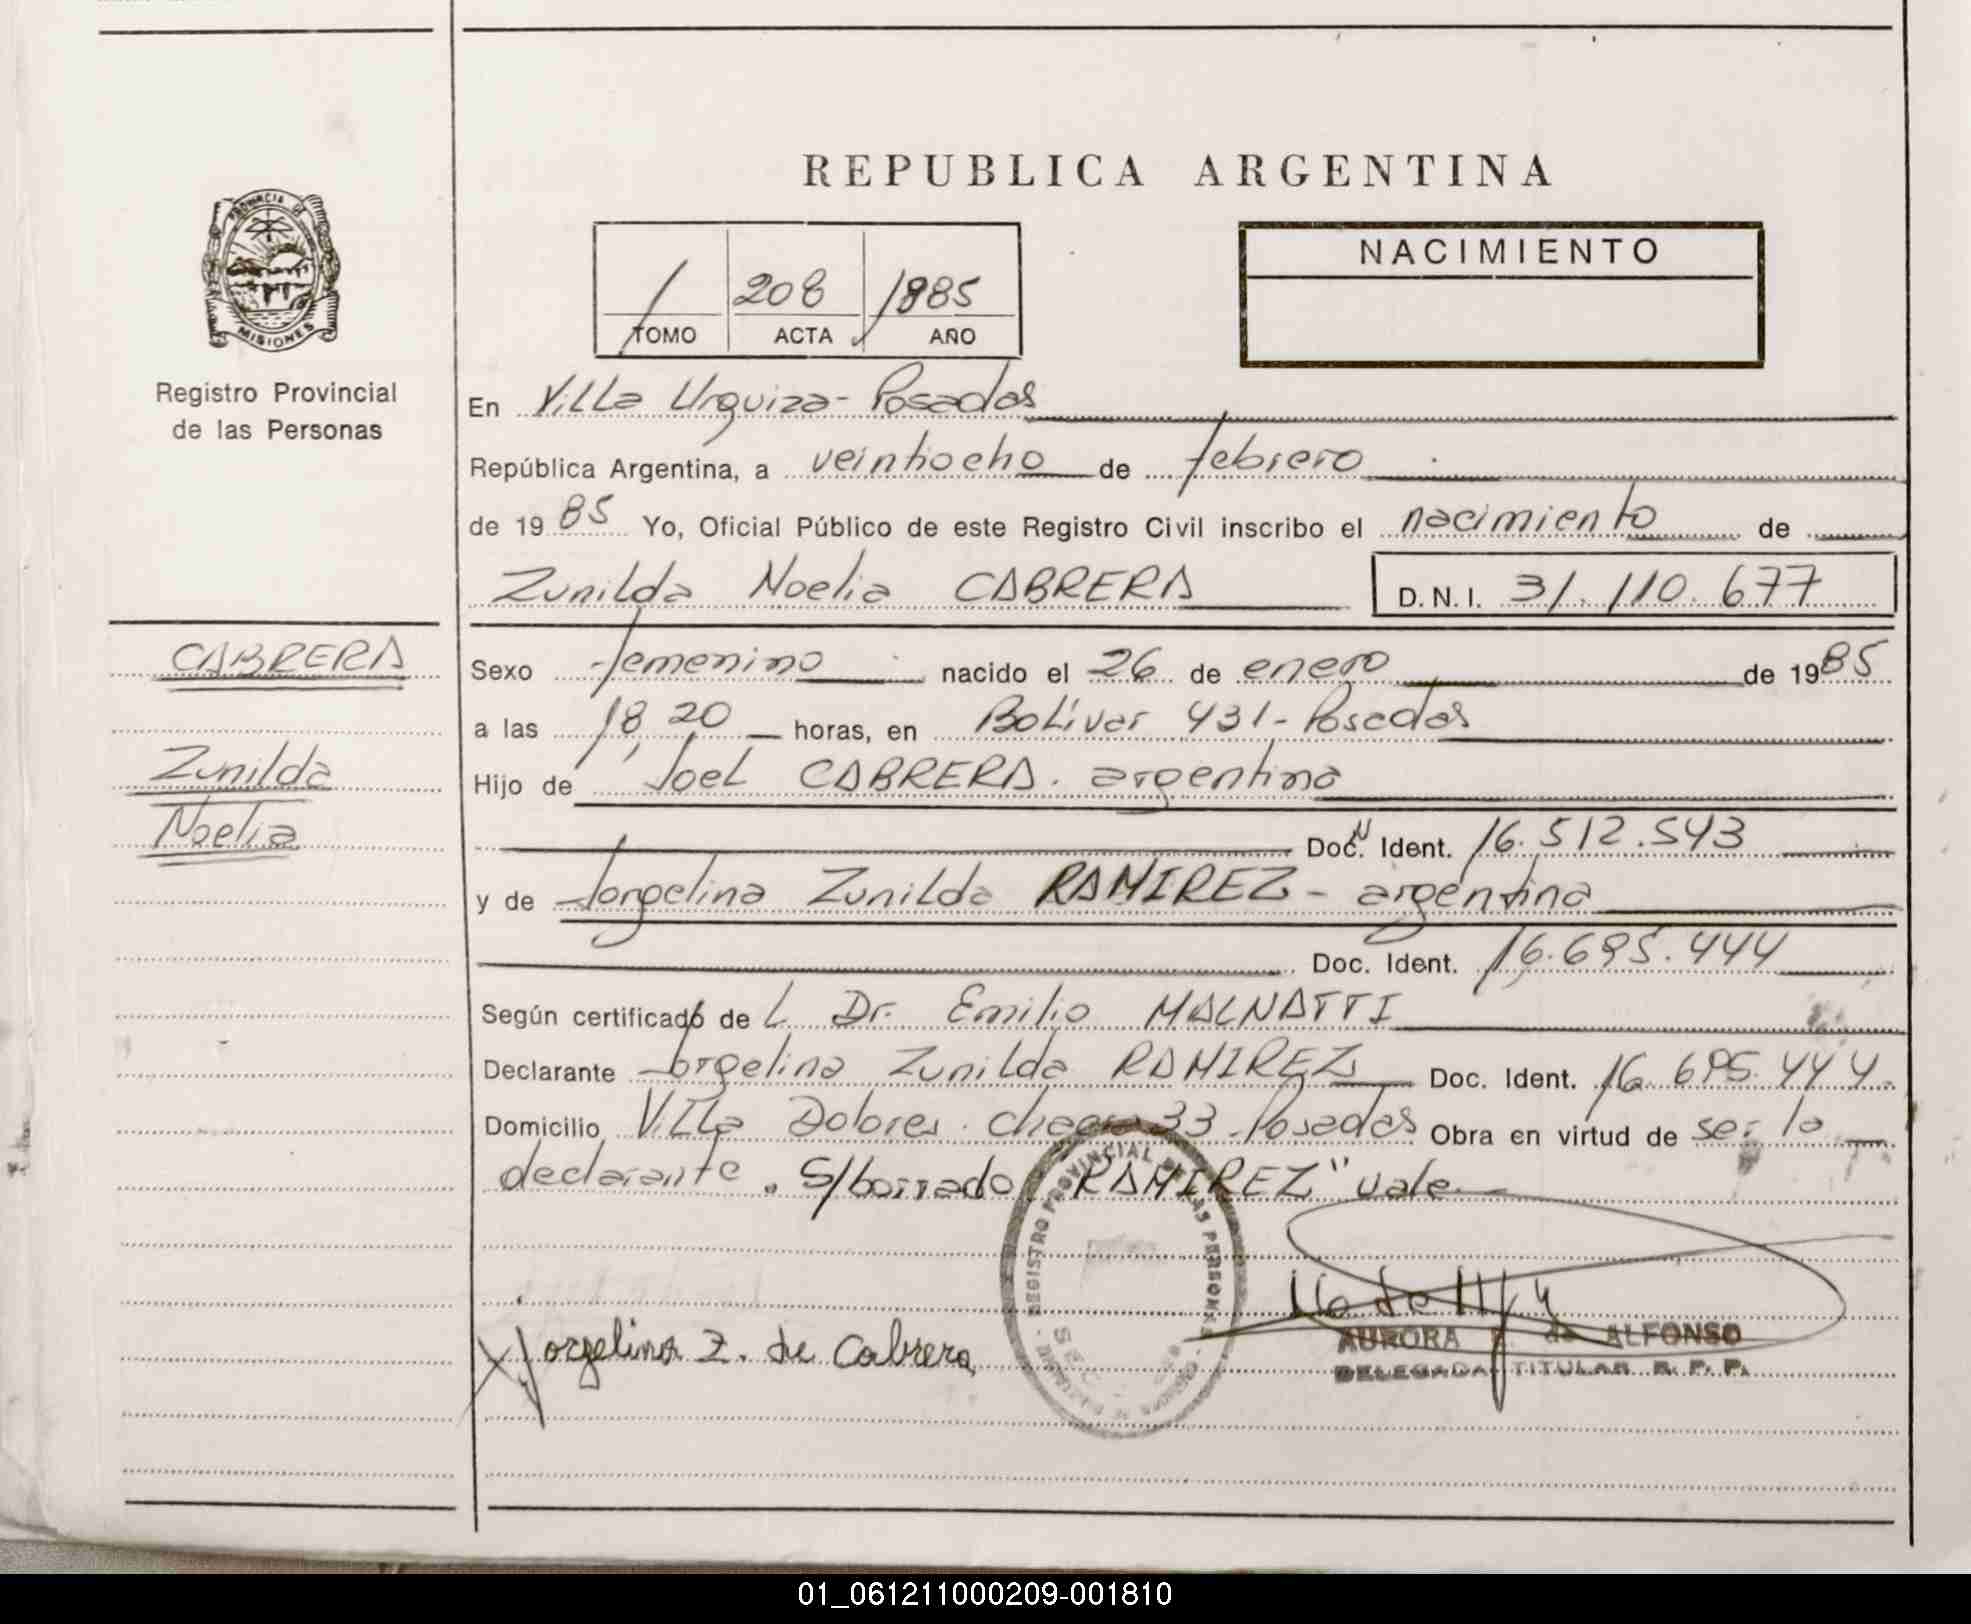 REPUBLICA ARGENTINA
PROVINCIA DE
MISIONES
Registro Provincial
de las Personas
NACIMIENTO
/ 208 1985
TOMO ACTA AÑO
En Villa Urquiza - Posadas
República Argentina, a veintiocho de febrero
de 1985 Yo, Oficial Público de este Registro Civil inscribo el nacimiento de
Zunilda Noelia CABRERA D.N.I. 31.110.677
CABRERA
Zunilda
Noelia
Sexo femenino nacido el 26 de enero de 1985
a las 18,20 horas, en Bolívar 431 - Posadas
Hijo de Joel CABRERA. argentino
Doc. Ident. 16.512.543
y de Jorgelina Zunilda RAMIREZ - argentina
Doc. Ident. 16.695.444
Según certificado de L Dr. Emilio MALNATTI
Declarante Jorgelina Zunilda RAMIREZ Doc. Ident. 16.695.444
Domicilio Villa Dolores. chacra 33 - Posadas Obra en virtud de ser la
declarante. S/borrado "RAMIREZ" vale
REGISTRO PROVINCIAL DE LAS PERSONAS
X Jorgelina Z. de Cabrera
AURORA de ALFONSO
DELEGADA TITULAR R. P. P.
01_061211000209-001810